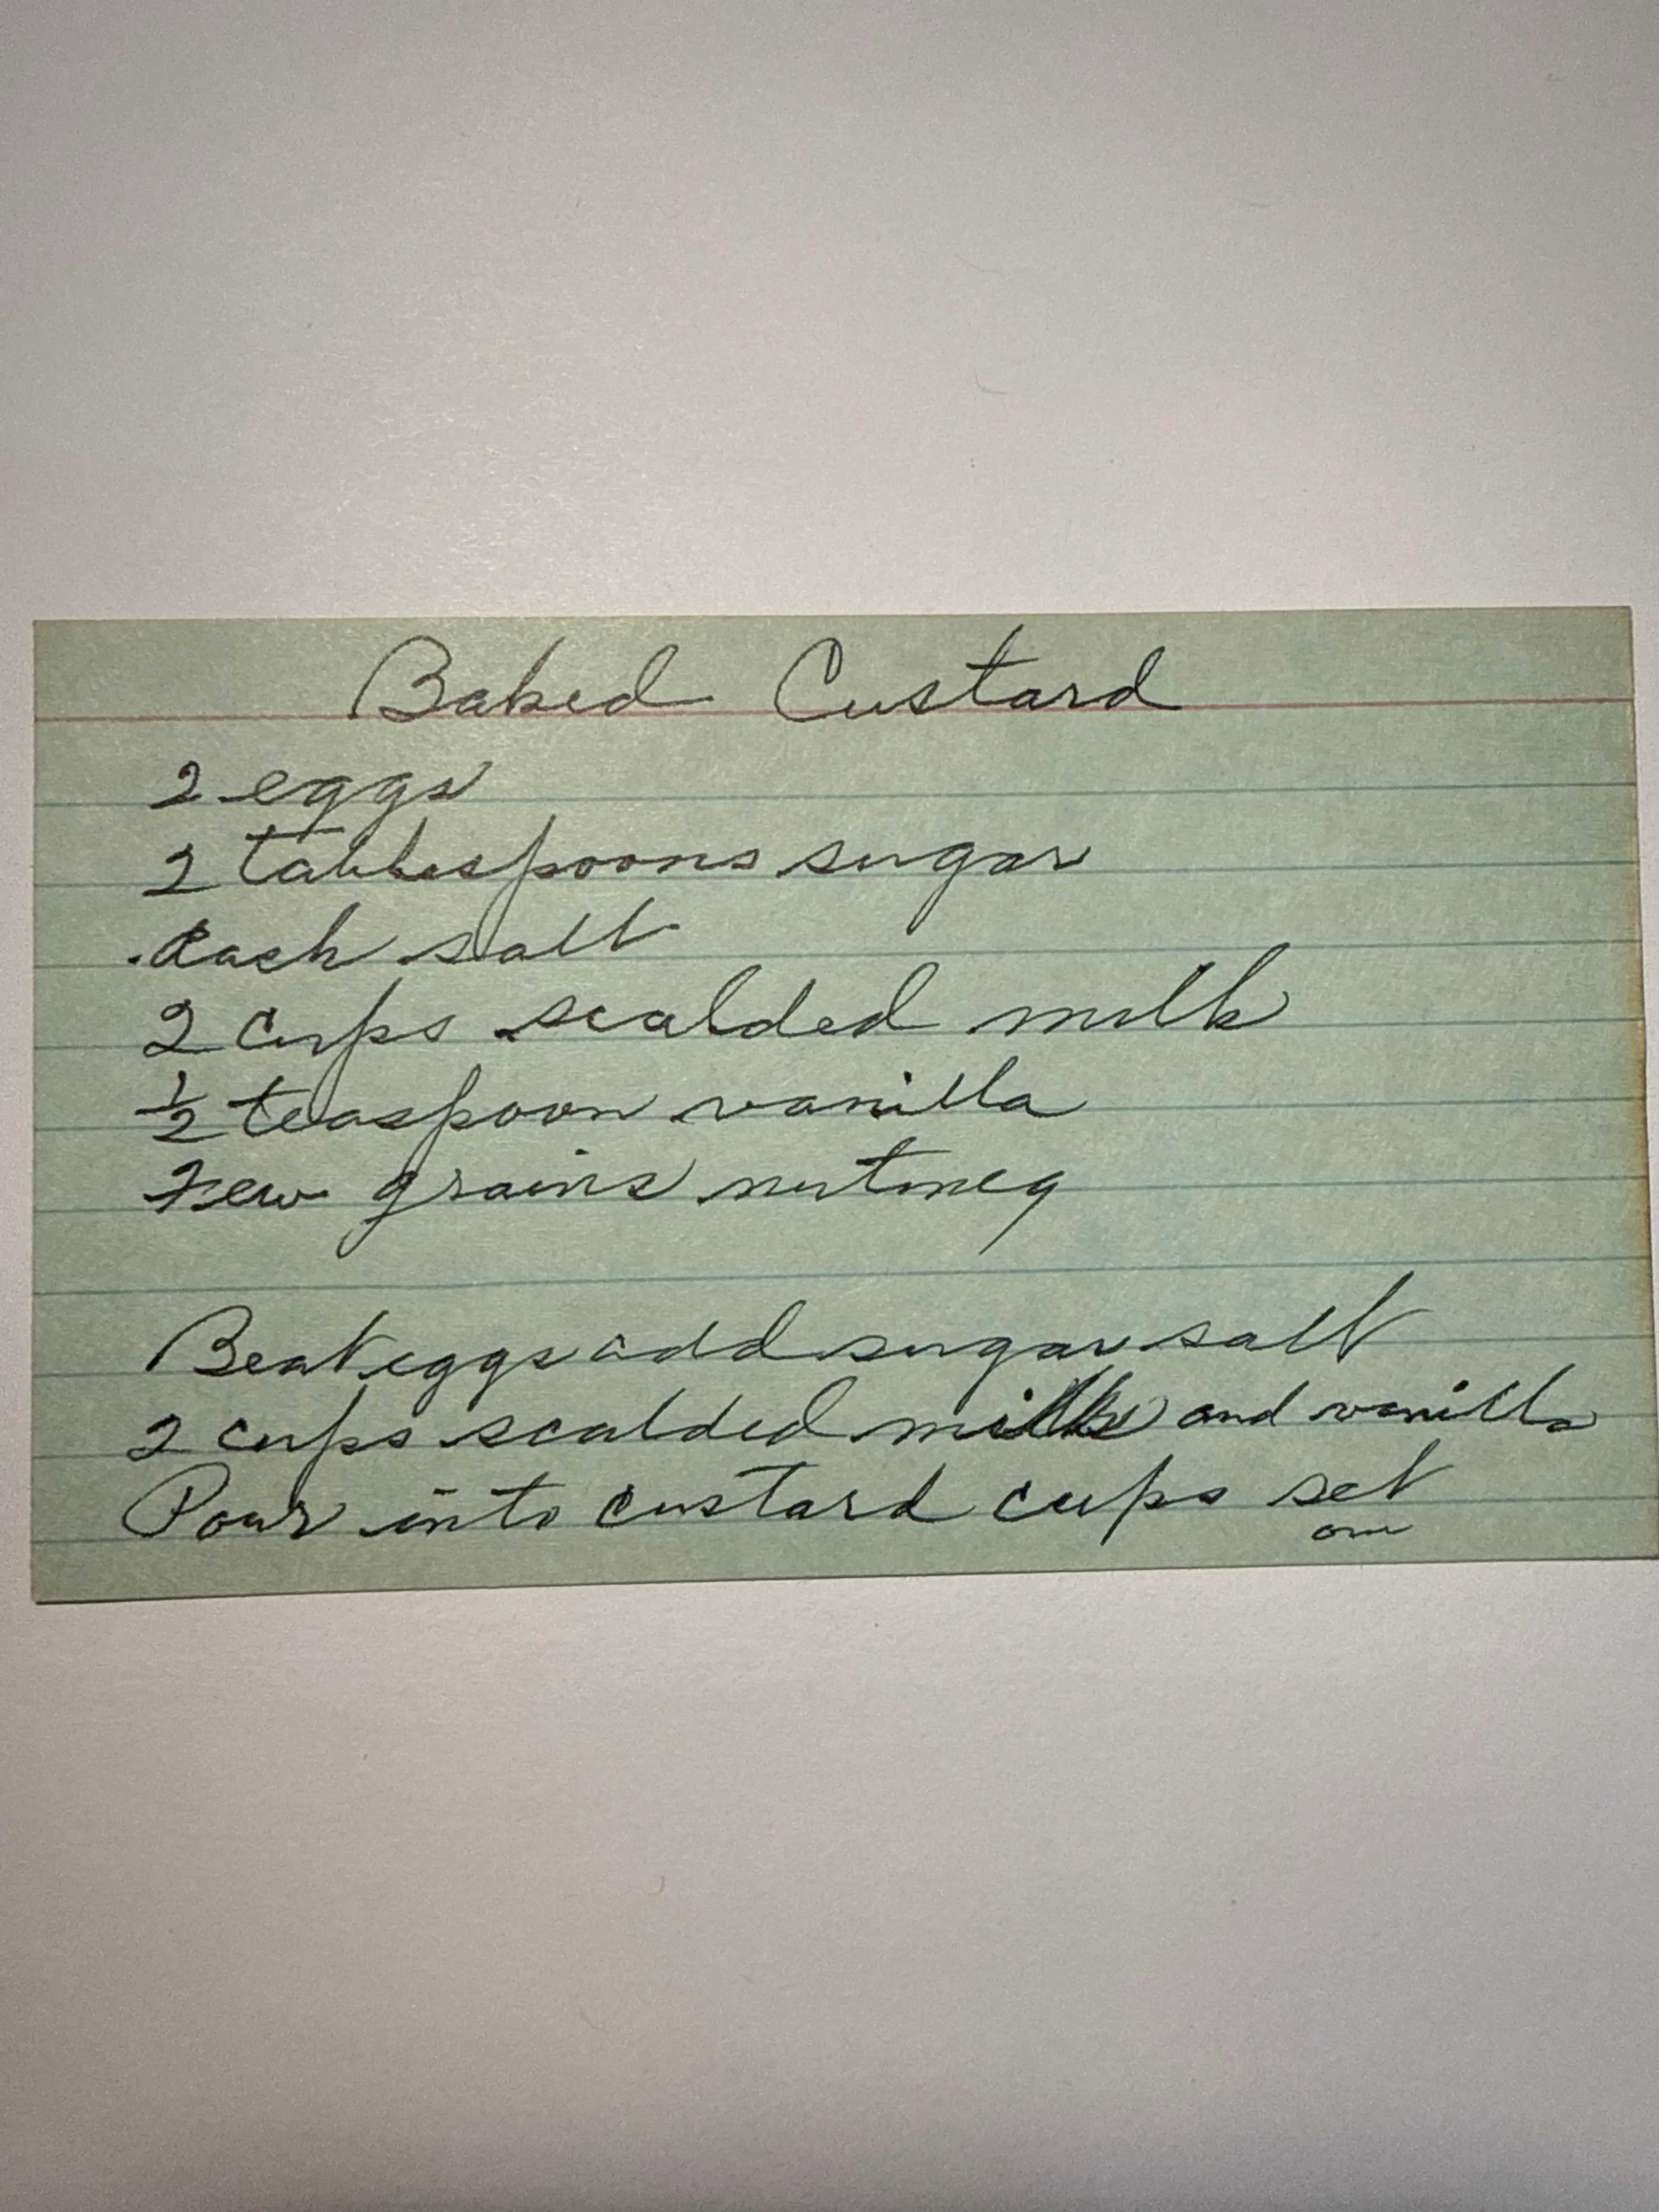 Baked Custard
2 eggs
2 tablespoons sugar
dash salt
2 cups scalded milk
½ teaspoon vanilla
Few grains nutmeg
Beat eggs add sugar salt
2 cups scalded milk and vanilla
Pour into custard cups set